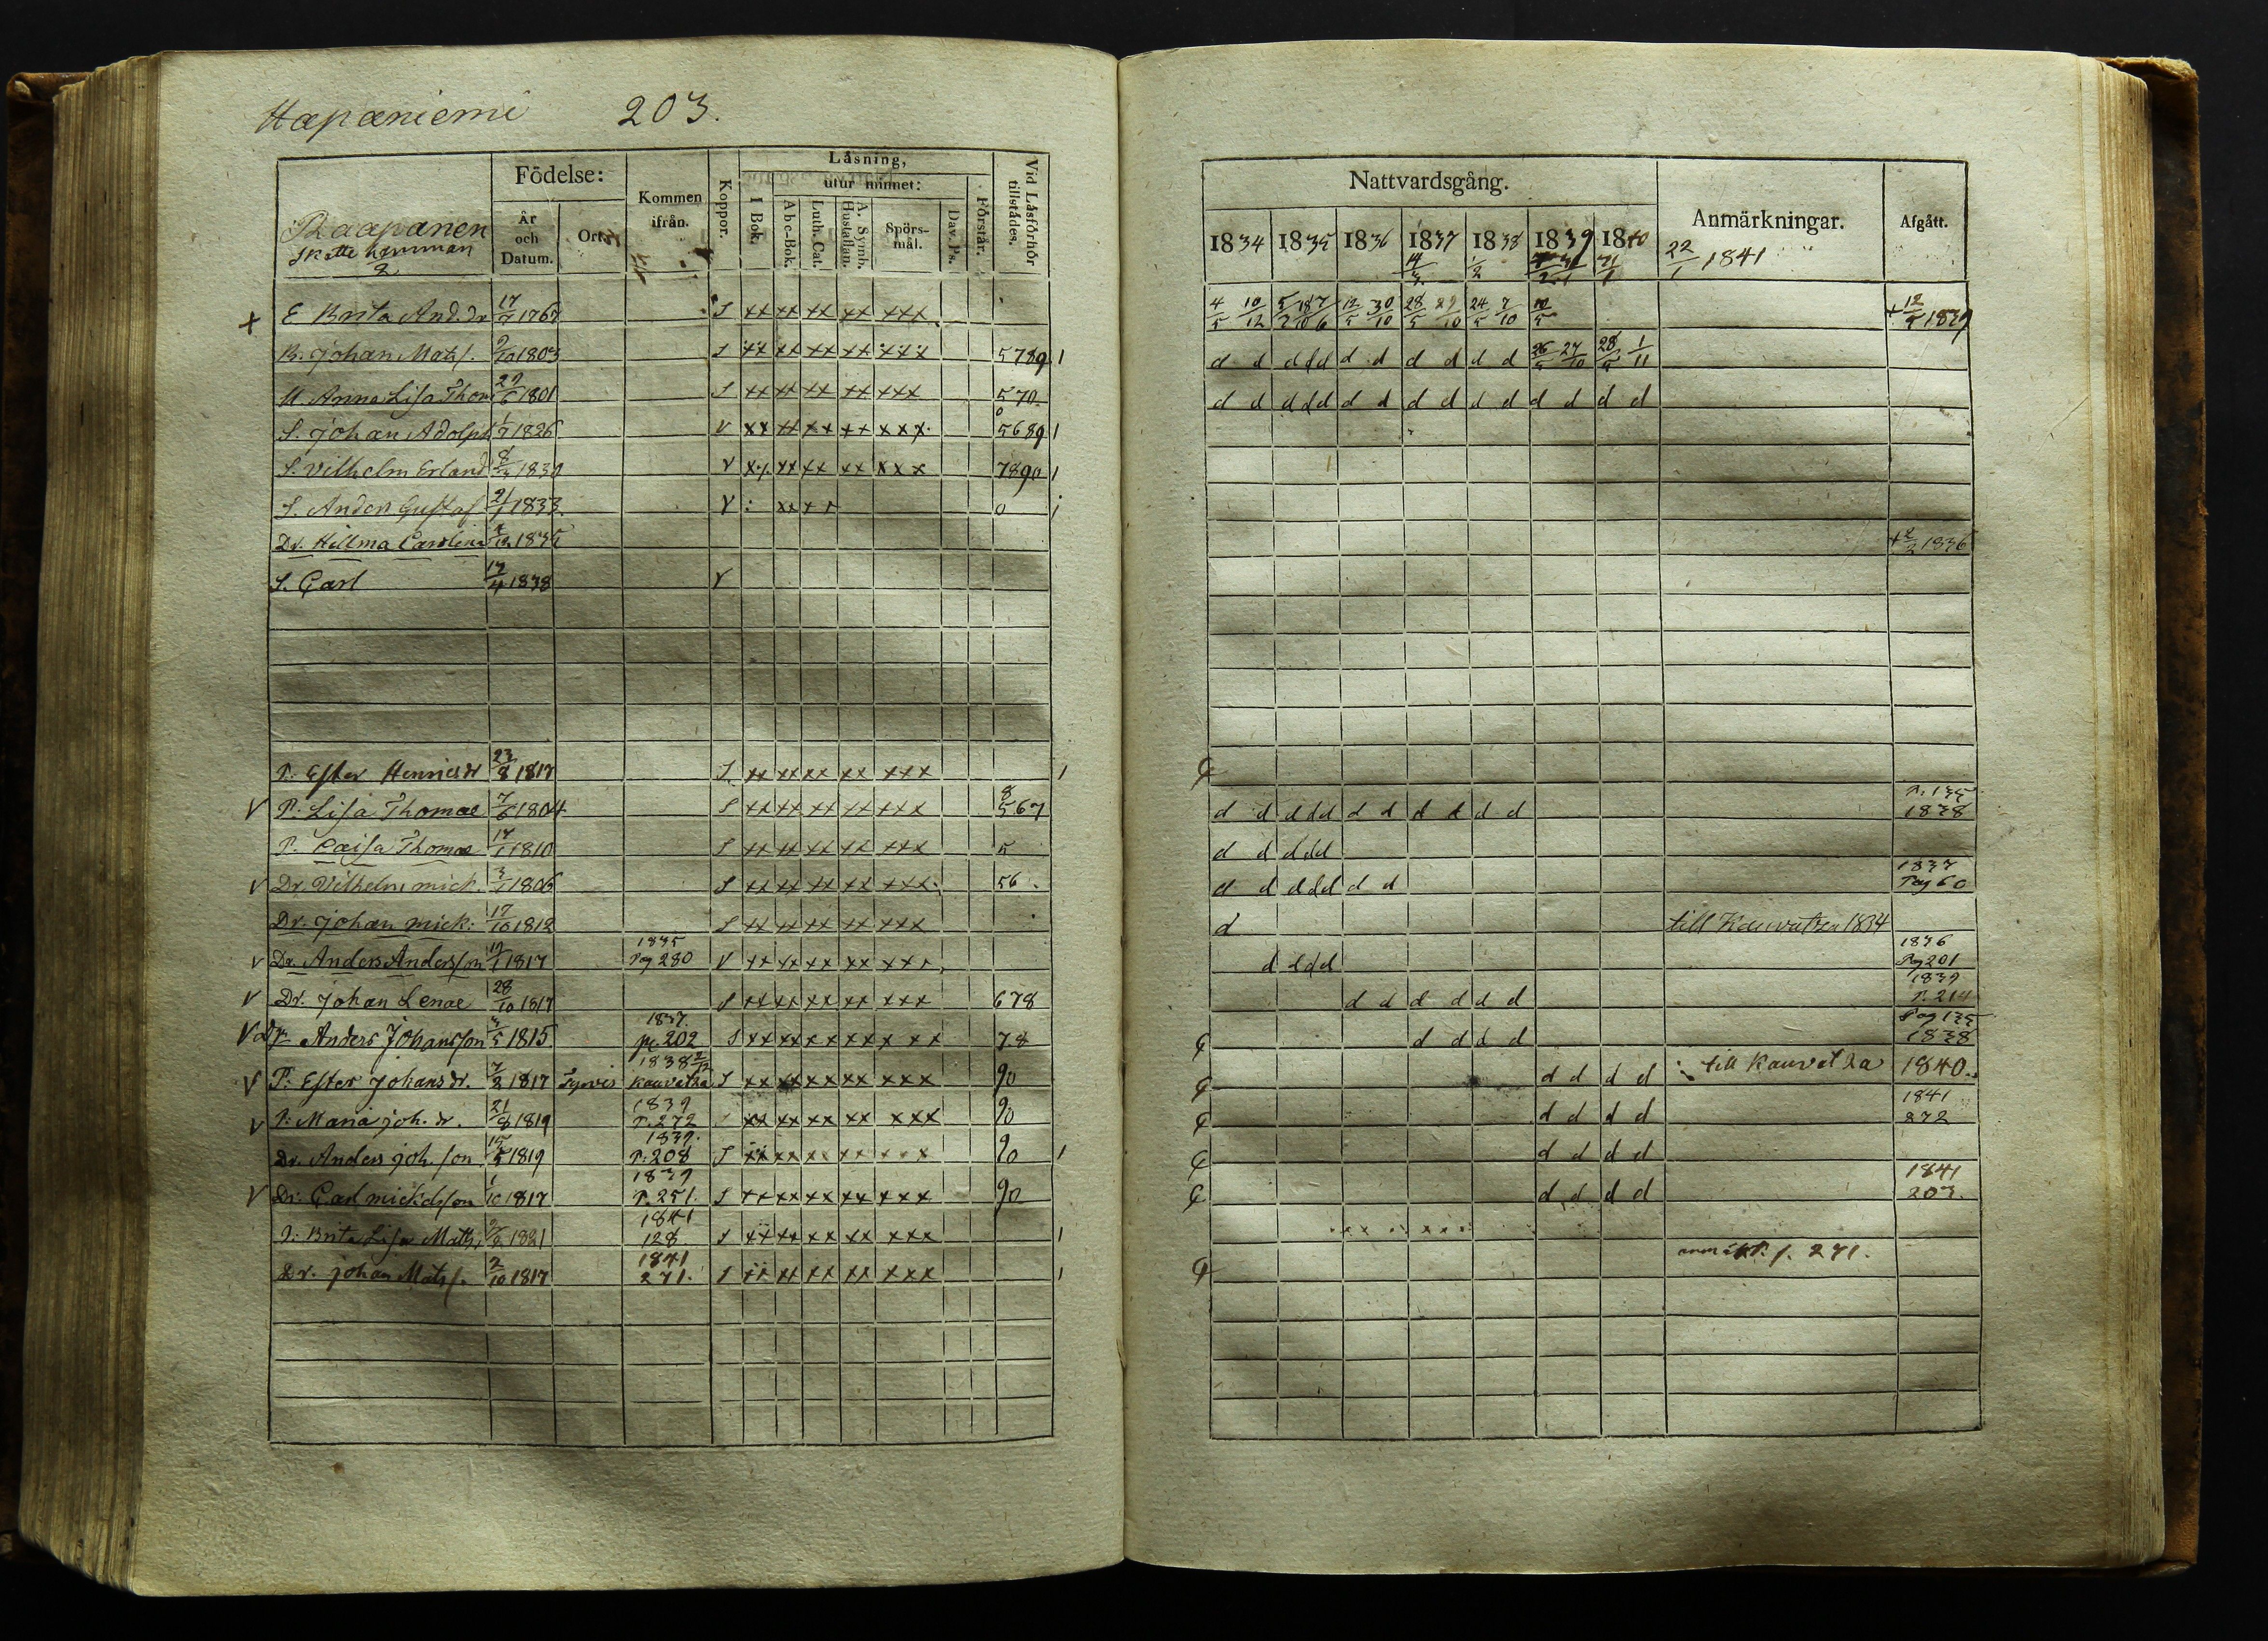 Hapaniemi 203.
Raapanen
Skatte hemman
2
Födelse:
År och Datum.
Ort.
Kommen ifrån.
Koppor.
Läsning,
utur minnet:
I Bok.
Abc-Bok.
Luth. Cat.
A. Symb. Hustaflan.
Spörsmål.
Dav. Ps.
Förstår.
Vid Läsförhör tillstädes.
Nattvardsgång.
Anmärkningar.
Afgått.
1834 1835 1836 1837 1838 1839 1840 22/1 1841
+ E Brita And. dr 17/7 1767 S xx xx xx xx xxx 4/5 10/12 12/5 30/10 28/5 29/10 24/5 7/10 + 12/5 1839
B. Johan Mats. 9/10 1803 S xx xx xx xx xxx 5789 1 d d d d d d d d d d d 26/5 27/10 28/5 1/11
U Anna Lisa Thom 29/6 1801 S xx xx xx xx xxx 570 d d d d d d d d d d d d d d d
S. Johan Adolph 1/7 1826 V xx xx xx xx xxx 5689 1
S. Vilhelm Erland 8/3 1830 V xx xx xx xx xxx 7890 1
S. Anders Gustaf 21/1 1833 V 0 1
Dr. Hillma Carolina 1835 + 2/2 1836
S. Carl 17/4 1838 V
P. Ester Henricsdr 23/8 1817 S xx xx xx xx xxx 1
V P. Lisa Thomae 7/6 1804 S xx xx xx xx xxx 8 567 d d d d d d d d d d d P. 135 1838
P. Caisa Thomae 17/1 1810 S xx xx xx xx xxx 5 d d d d d
V Dr. Vilhelm mick. 3/1 1806 S xx xx xx xx xxx 56 d d d d d d d 1837 Pag 60
Dr. Johan mick: 17/10 1812 S xx xx xx xx xxx d till Kauvatsa 1834
V Dr. Anders Andersson 19/1 1817 1835 Pag 280 V xx xx xx xx xxx d d d d 1836 Pag 201
V Dr. Johan Lenae 28/10 1817 S xx xx xx xx xxx 678 d d d d d d 1839 P. 214
V dr Anders Johansson 3/5 1815 1837 pg. 202 S xx xx xx xx xxx 78 d d d d Pag 135 1838
V P. Ester Johansdr. 7/2 1817 1838 2/12 Kauvatsa S xx xx xx xx xxx 90 d d d d till Kauvatsa 1840.
V P. Maria Joh. dr. 21/8 1819 1839 P. 272 xx xx xx xx xxx 90 d d d d 1841 272
Dr. Anders Joh. son 15/5 1819 1839. P. 208 S xx xx xx xx xxx 90 1 d d d d
V Dr. Carl mickelsson 1/10 1817 1839 P. 251. S xx xx xx xx xxx 90 d d d d 1841 203.
P. Brita Lisa Mats. 1821 1841 128. S xx xx xx xx xxx 1
Dr. Johan Mats. 2/10 1817 1841 271. S xx xx xx xx xxx 1 p. 271.